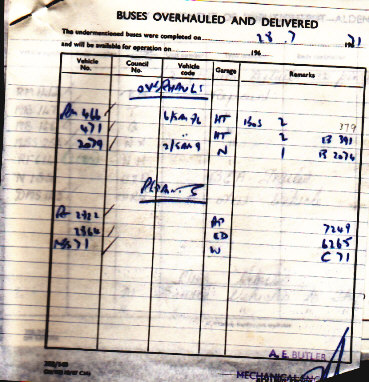 BUSES OVERHAULED AND DELIVERED
The undermentioned buses were completed on 28 7 1971
and will be available for operation on 196
Vehicle No. Council No. Vehicle code Garage Remarks
OVERHAULS
466 HT BoS 2 379
471 " HT 2 B 391
2079 N 1 B 2074
2922 AP 7249
2964 ED 6265
MS 71 W C 71
A. E. BUTLER
MECHANICAL